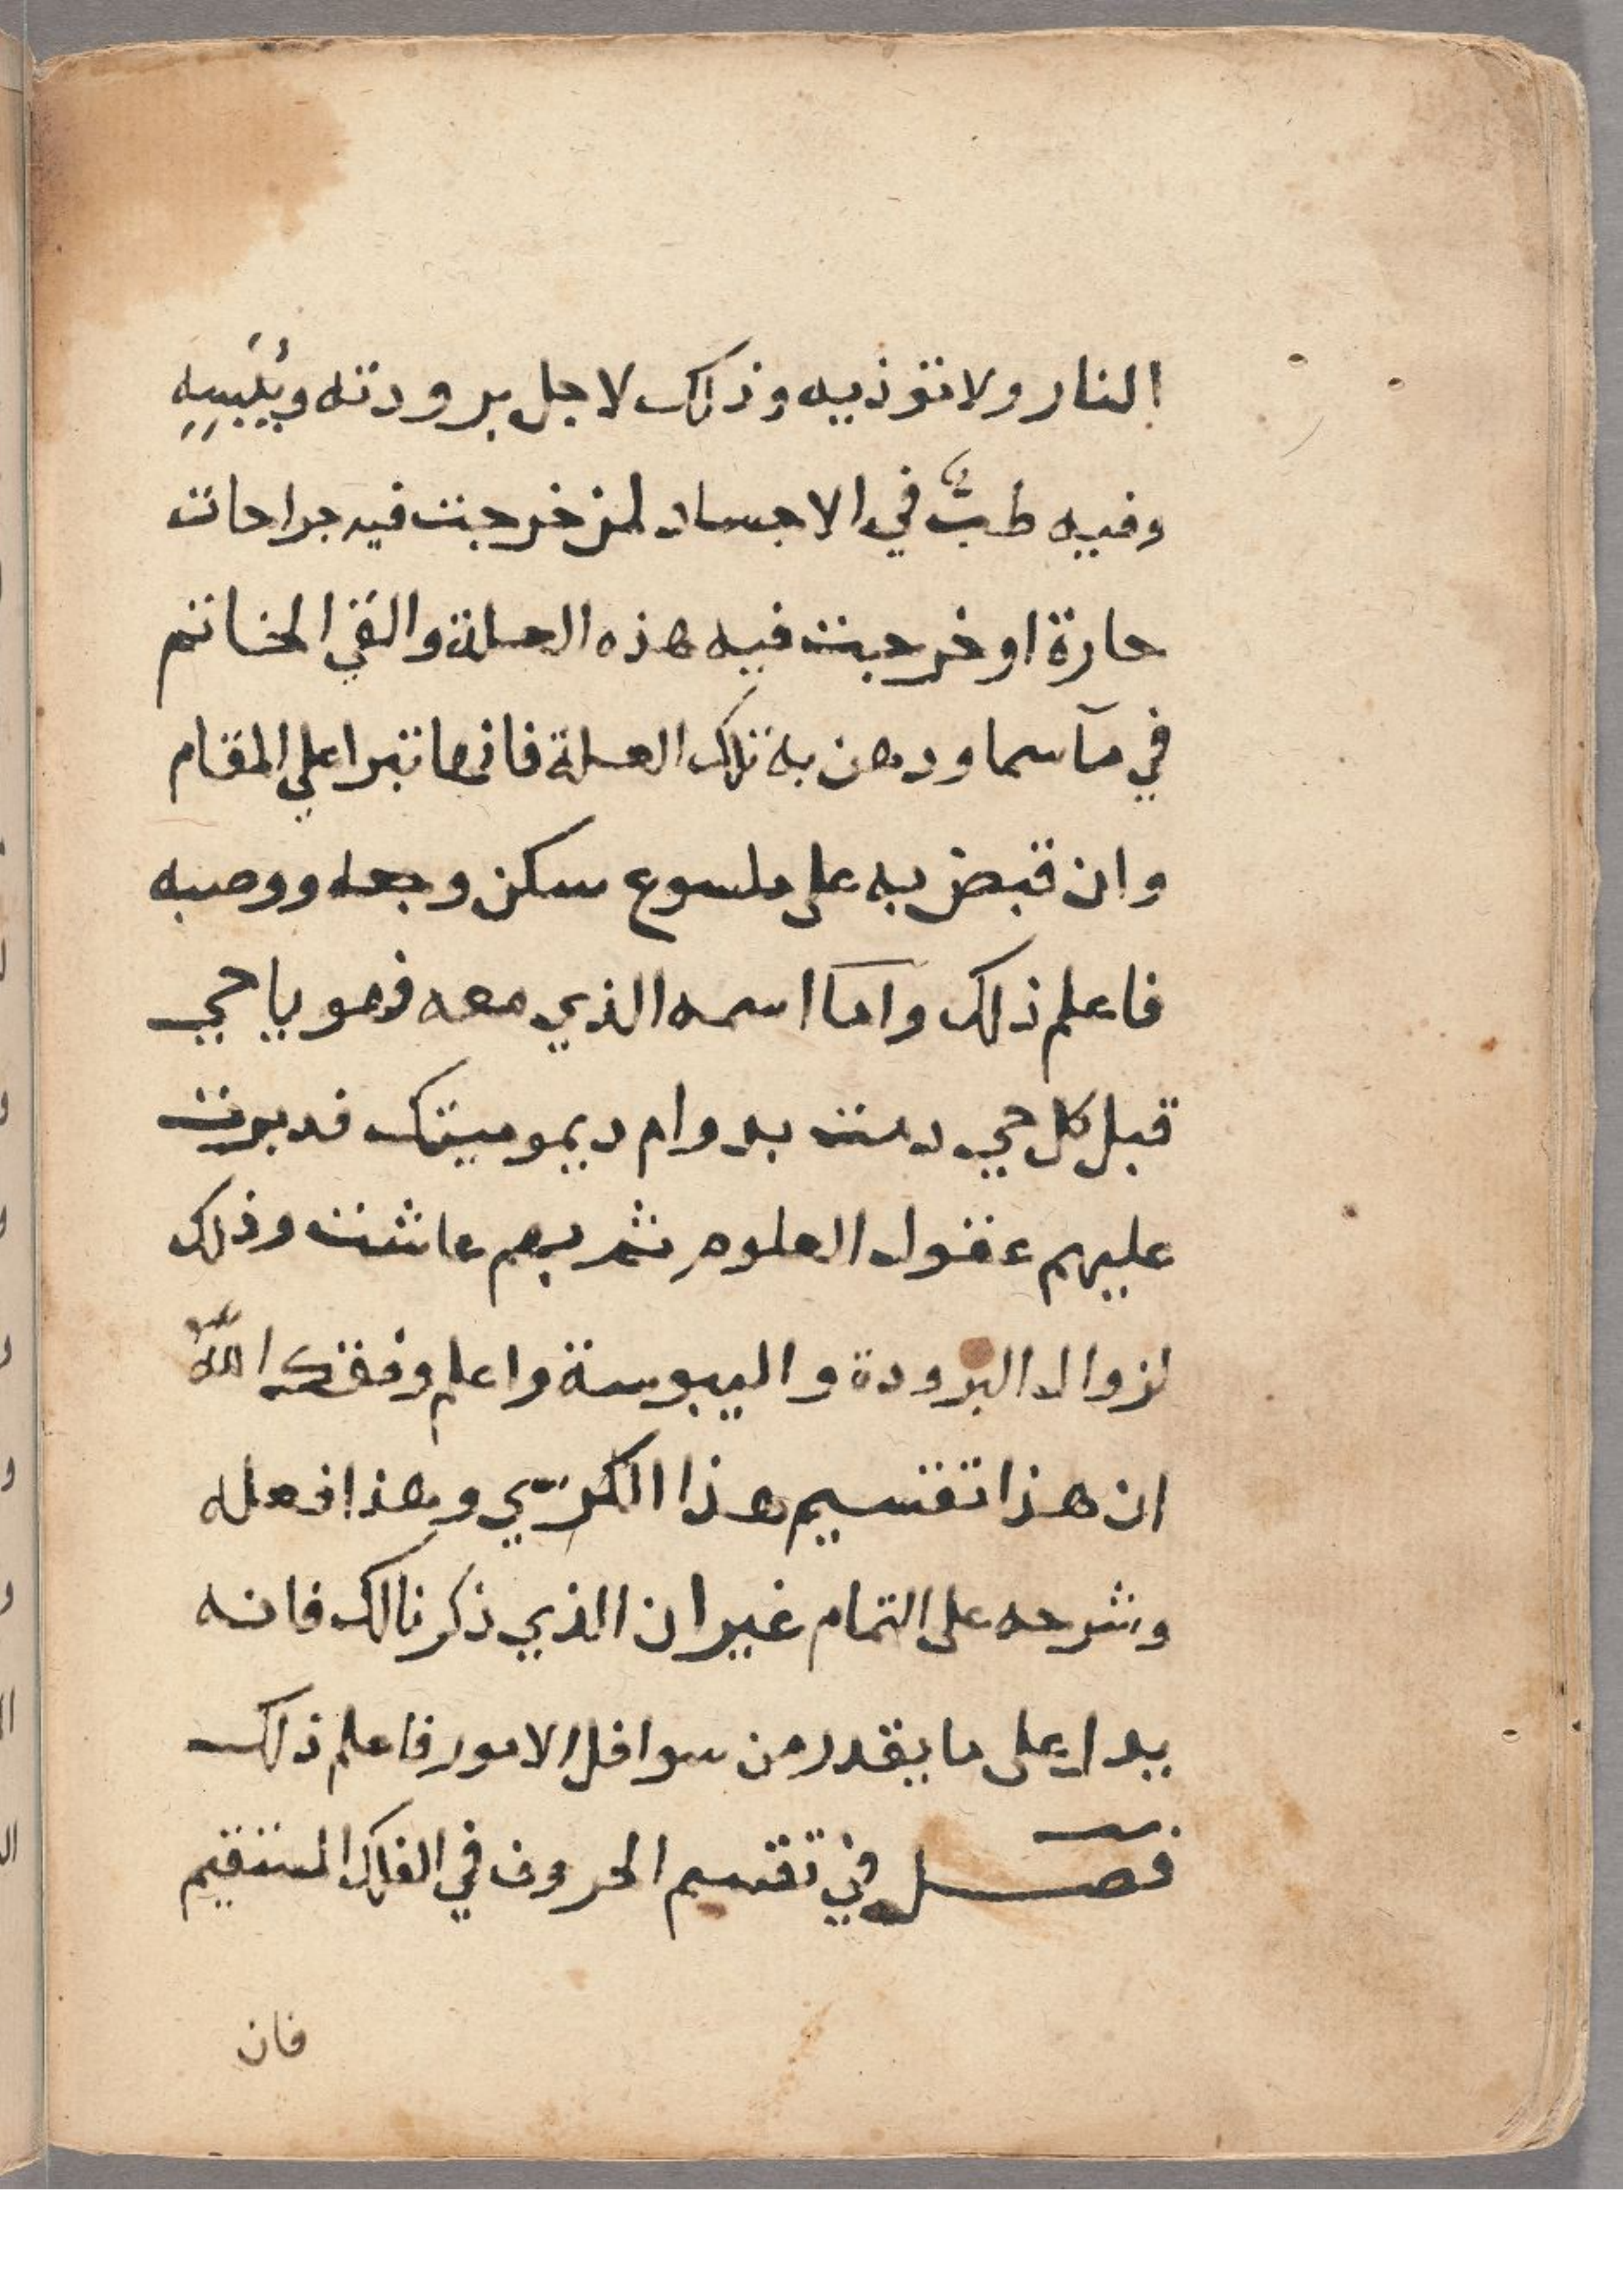 النار ولا توذيه وذلك لاجل برودته ويُبْسِهِ
وفيه طبٌّ في الاجساد لمن خرجت فيه جراحات
حارة او خرجت فيه هذه العلة والقي الخاتم
في مآ سما ودهن به تلك العلة فانها تبرا علي المقام
وان قبض به على ملسوع سكن وجعه ووصبه
فاعلم ذلك واما اسمه الذي معه فهو يا حي
قبل كل حي دمت بدوام ديموميتك فدبرت
عليهم عقول العلوم ثم بهم عاشت وذلك
لزوال البرودة واليبوسة واعلم وفقك الله
ان هذا تقسيم هذا الكرسي وهذا فعله
وشرحه على التمام غير ان الذي ذكرنا لك فانه
يدا على ما يقدر من سوافل الامور فاعلم ذلك
فصل في تقسيم الحروف في الفلك المستقيم
فان